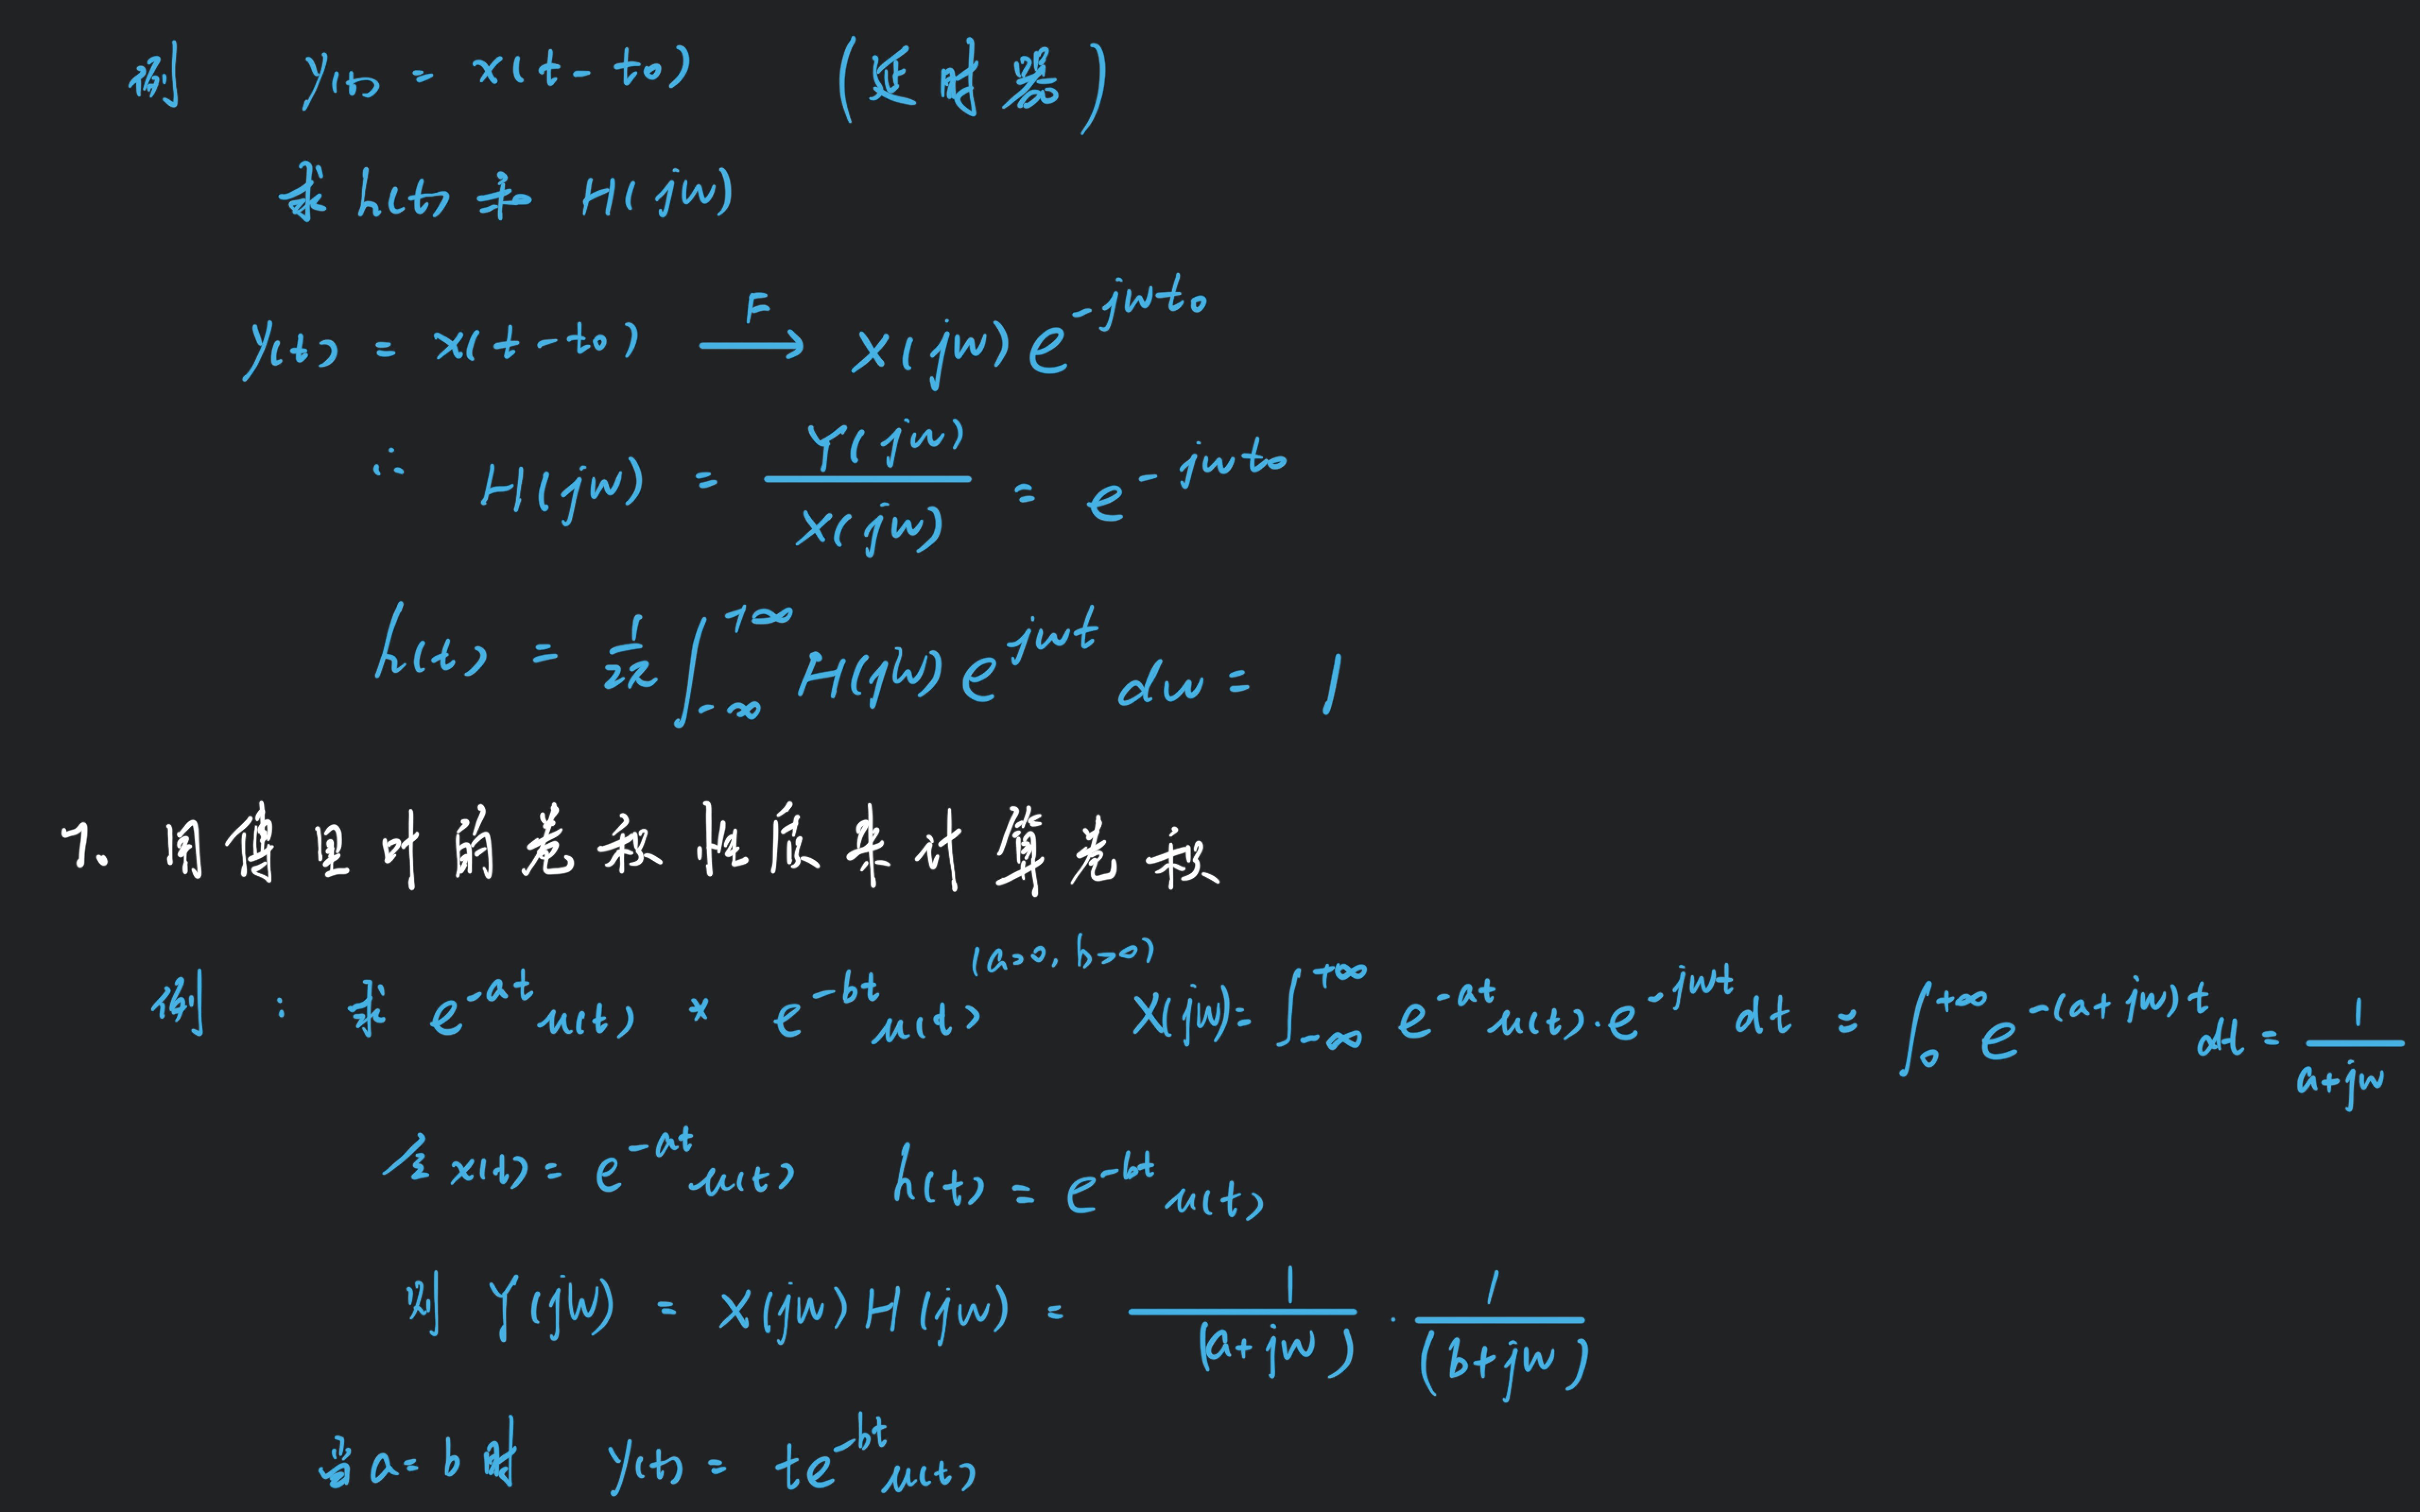 例 y(t) = x(t-t₀) (延时器)
求 h(t) 和 H(jw)
y(t) = x(t-t₀) —F→ X(jw)e^{-jwt₀}
∴ H(jw) = Y(jw)/X(jw) = e^{-jwt₀}
h(t) = 1/2π ∫_{-∞}^{+∞} H(jw)e^{jwt} dw = 1
7、用傅里叶的卷积性质来计算卷积
例：求 e^{-at}u(t) * e^{-bt}u(t) (a>0, b>0) X(jw) = ∫_{-∞}^{+∞} e^{-at}u(t)·e^{-jwt}dt = ∫_0^{+∞} e^{-(a+jw)t}dt = 1/(a+jw)
令 x(t) = e^{-at}u(t) h(t) = e^{-bt}u(t)
则 Y(jw) = X(jw)H(jw) = 1/(a+jw) · 1/(b+jw)
当 a=b 时 y(t) = te^{-bt}u(t)